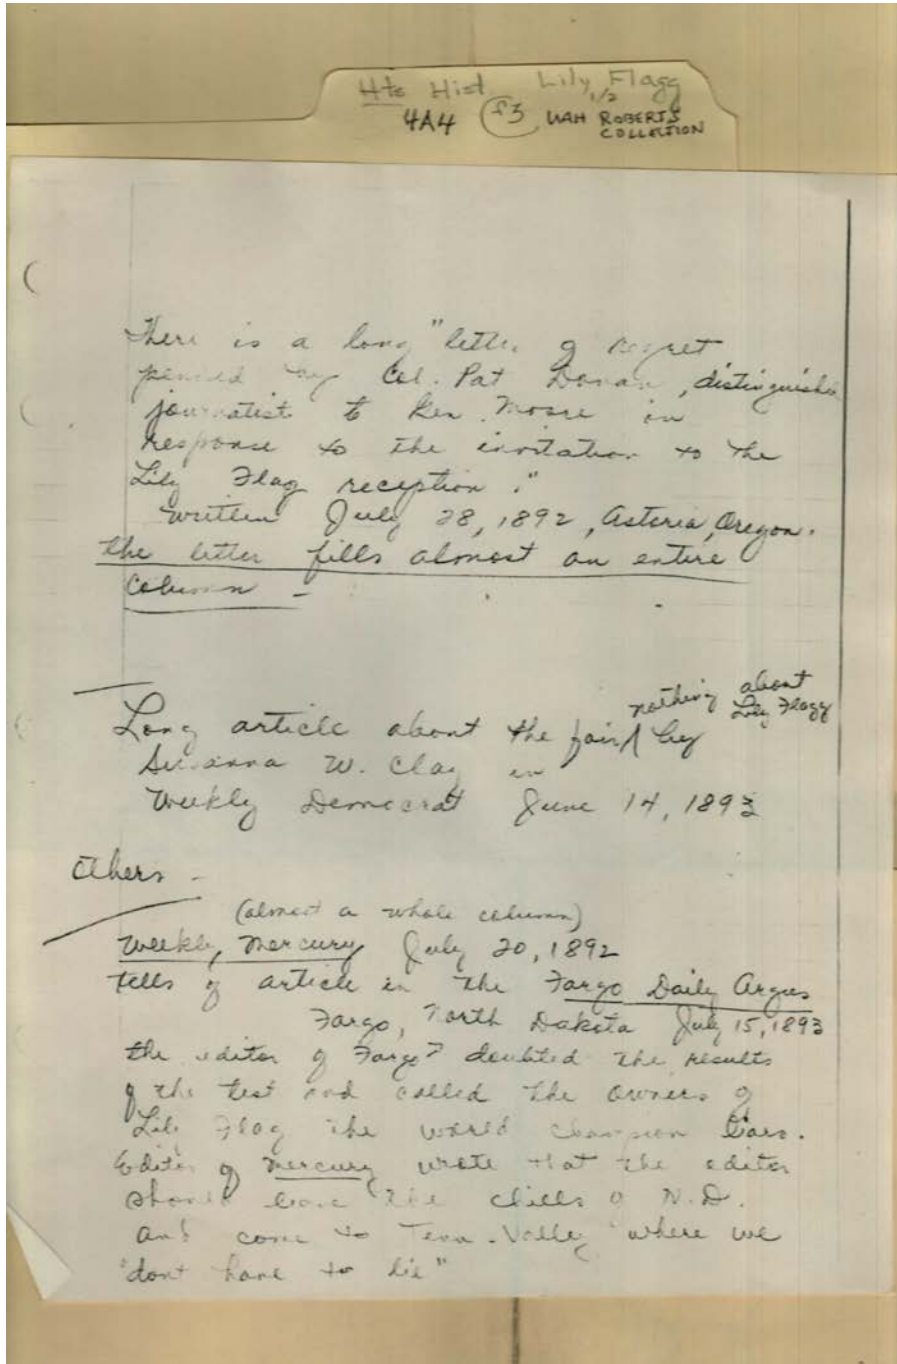 Hts Hist Lily Flagg
1/2
4A4 f3 UAH ROBERTS
COLLECTION
There is a long "letter of regret
penned by Col. Pat Donan, distinguished
journalist to Gen. Moore in
response to the invitation to the
Lily Flag reception."
written July 28, 1892, Astoria, Oregon.
the letter fills almost an entire
column -
nothing about
Lily Flagg
Long article about the fair by
Susanna W. Clay in
Weekly Democrat June 14, 1893
Others -
(almost a whole column)
Weekly Mercury July 20, 1892
tells of article in the Fargo Daily Argus
Fargo, North Dakota July 15, 1893
the editor of Fargo doubted the results
of the test and called the owners of
Lily Flag the world champion liars.
Editor of Mercury wrote that the editor
should leave the chills of N.D.
and come to Tenn. Valley "where we
dont have to lie"